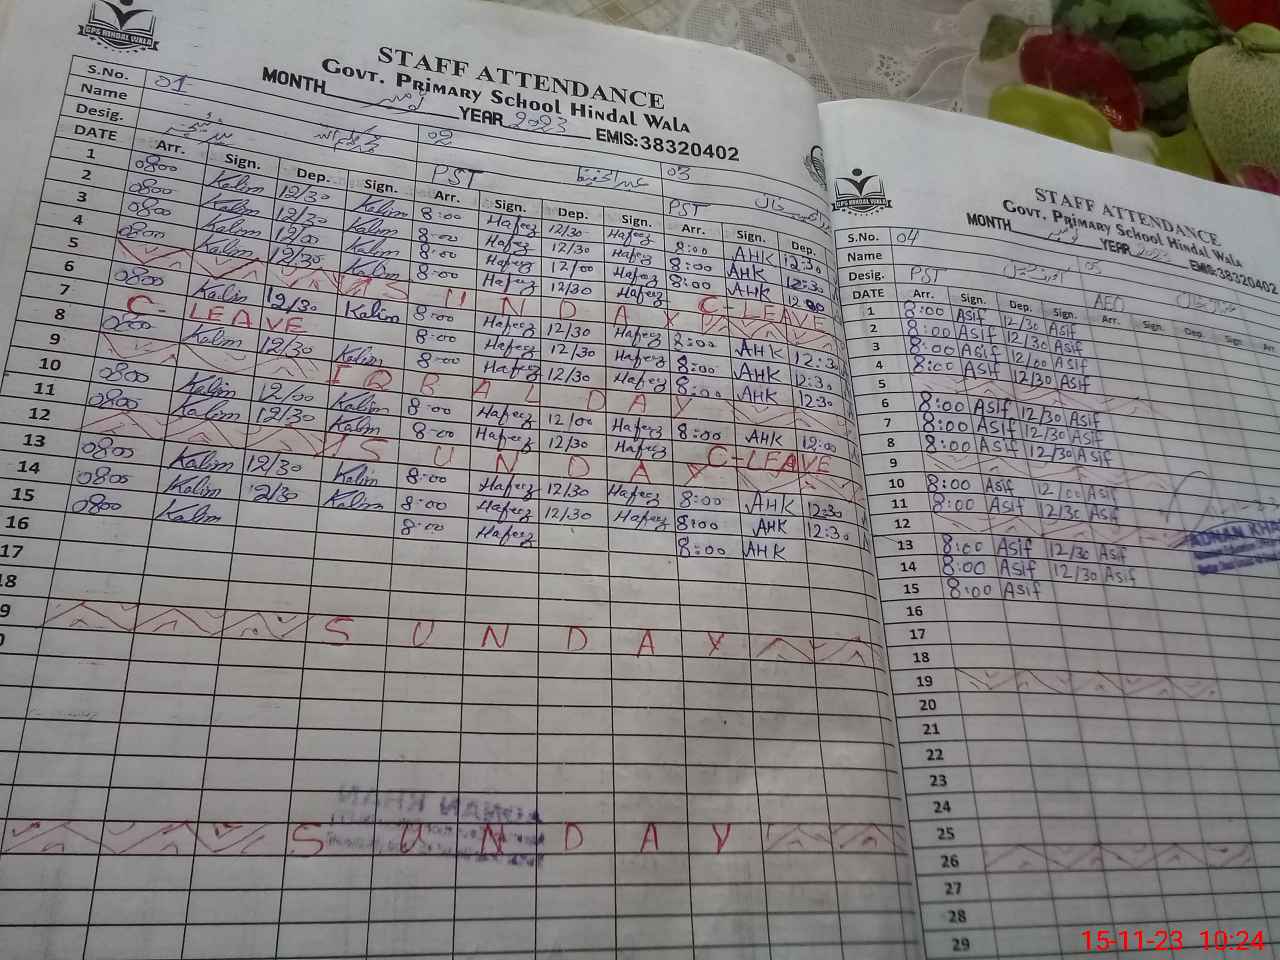 GPS HINDAL WALA
STAFF ATTENDANCE
GOVT. PRIMARY SCHOOL HINDAL WALA
MONTH نومبر YEAR 2023 EMIS:38320402
S.No. 01 02 03
Name
Desig. PST PST
DATE Arr. Sign. Dep. Sign. Arr. Sign. Dep. Sign. Arr. Sign. Dep.
1 0800 Kalim 12/30 Kalim 8:00 Hafeez 12/30 Hafeez 8:00 AHK 12:30
2 0800 Kalim 12/30 Kalim 8:00 Hafeez 12/30 Hafeez 8:00 AHK 12:30
3 0800 Kalim 12/00 Kalim 8:00 Hafeez 12/00 Hafeez 8:00 AHK 12:00
4 0800 Kalim 12/30 Kalim 8:00 Hafeez 12/30 Hafeez C-LEAVE
5 SUNDAY
6 0800 Kalim 12/30 Kalim 8:00 Hafeez 12/30 Hafeez 8:00 AHK 12:30
7 C-LEAVE 8:00 Hafeez 12/30 Hafeez 8:00 AHK 12:30
8 0800 Kalim 12/30 Kalim 8:00 Hafeez 12/30 Hafeez 8:00 AHK 12:30
9 IQBAL DAY
10 0800 Kalim 12/00 Kalim 8:00 Hafeez 12/00 Hafeez 8:00 AHK 12:00
11 0800 Kalim 12/30 Kalim 8:00 Hafeez 12/30 Hafeez C-LEAVE
12 SUNDAY
13 0800 Kalim 12/30 Kalim 8:00 Hafeez 12/30 Hafeez 8:00 AHK 12:30
14 0800 Kalim 12/30 Kalim 8:00 Hafeez 12/30 Hafeez 8:00 AHK 12:30
15 0800 Kalim 8:00 Hafeez 8:00 AHK
16
17
18
9 SUNDAY
0
SUNDAY
GPS HINDAL WALA
STAFF ATTENDANCE
GOVT. PRIMARY SCHOOL HINDAL WALA
MONTH نومبر YEAR 2023 EMIS:38320402
S.No. 04 05
Name
Desig. PST AEO
DATE Arr. Sign. Dep. Sign. Arr. Sign. Dep. Sign. Arr
1 8:00 Asif 12/30 Asif
2 8:00 Asif 12/30 Asif
3 8:00 Asif 12/00 Asif
4 8:00 Asif 12/30 Asif
5
6 8:00 Asif 12/30 Asif
7 8:00 Asif 12/30 Asif
8 8:00 Asif 12/30 Asif
9
10 8:00 Asif 12/00 Asif
11 8:00 Asif 12/30 Asif
12
ADNAN KHA
13 8:00 Asif 12/30 Asif
14 8:00 Asif 12/30 Asif
15 8:00 Asif
16
17
18
19
20
21
22
23
24
25
26
27
28
29
15-11-23 10:24